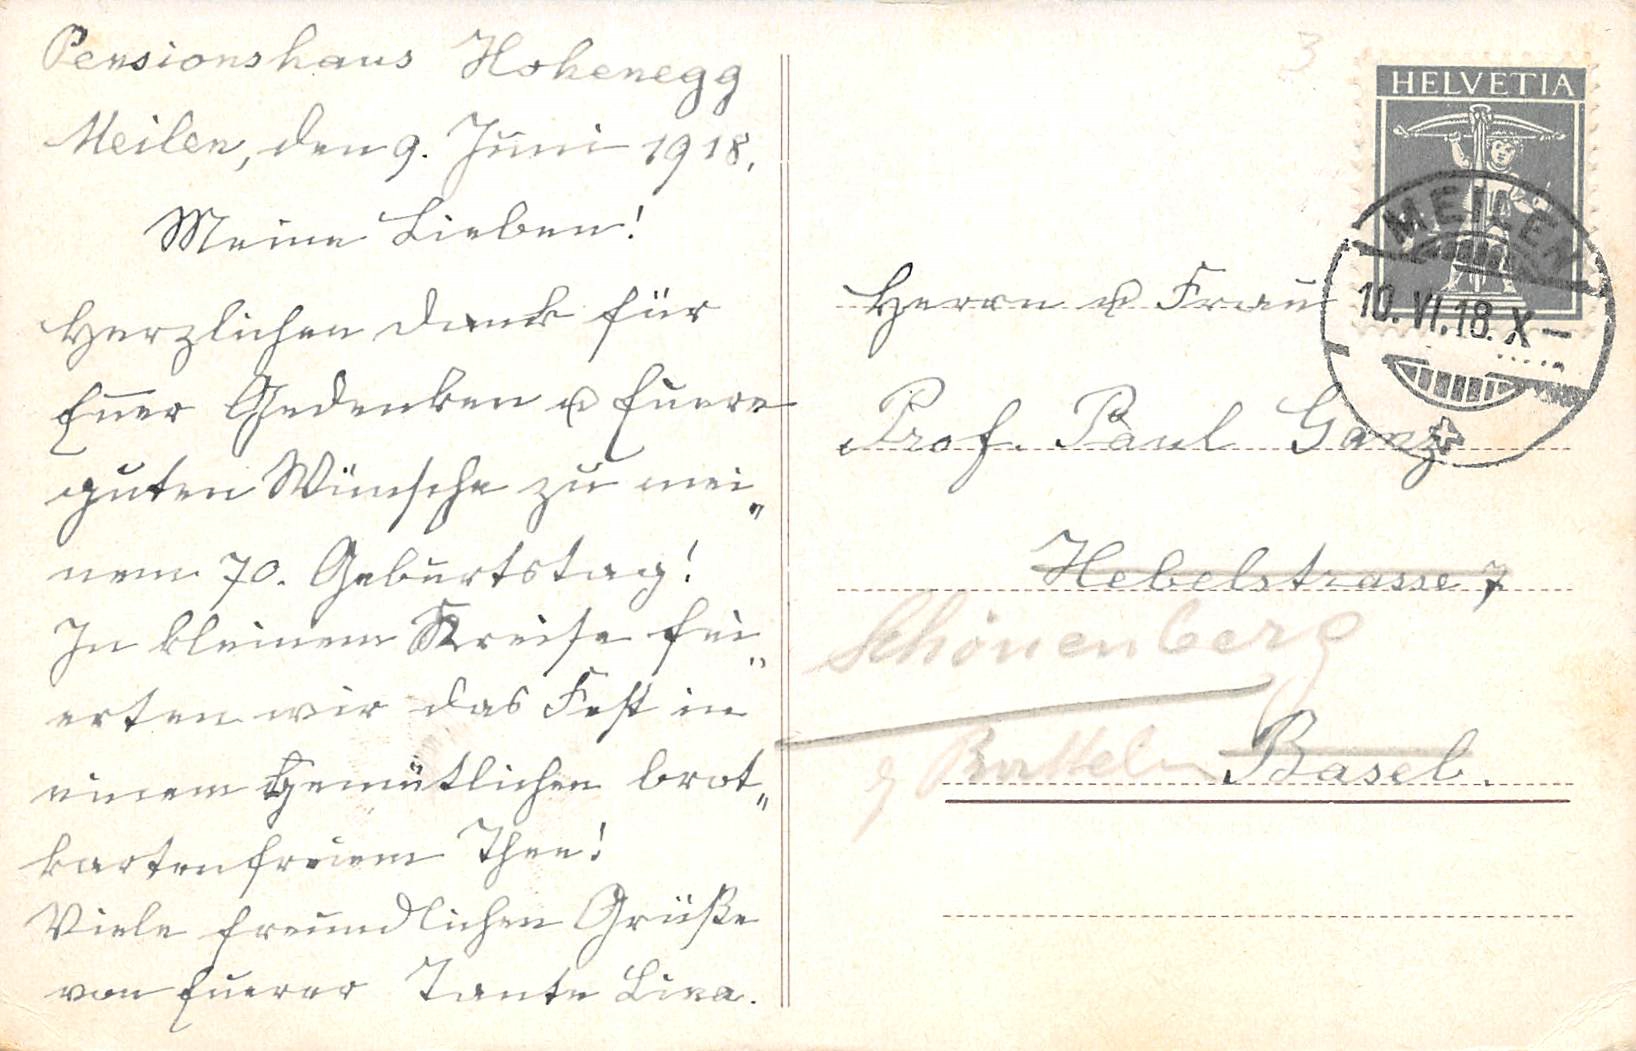 Pensionshaus Hohenegg
Meilen, den 9. Juni 1918.
Meine Lieben!
Herzlichen Dank für
Euer Gedenken u Euere
guten Wünsche zu mei„
nem 70. Geburtstag!
In kleinem Kreise fei„
erten wir das Fest in
einem Gemütlichen brot„
kartenfreiem Thee!
Viele freundlichen Grüße
von Euerer Tante Lina.
3
HELVETIA
MEILEN
10. VI. 18. X –
Herrn u Frau
Prof. Paul Ganz
Hebelstrasse 7
Schönenberg
Basel.